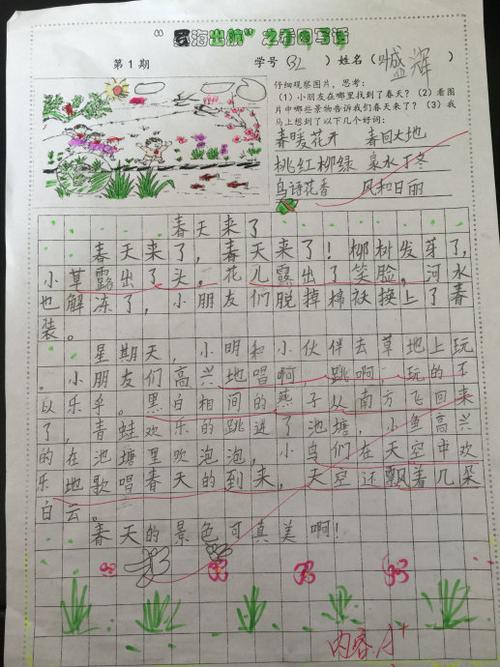 "書海出航"之看图写话
第1期 学号(32) 姓名(臧辉)
仔细观察图片，思考：
(1)小朋友在哪里找到了春天？(2)看图
片中哪些景物告诉我们春天来了？(3)我
马上想到了以下几个好词：
春暖花开 春回大地
桃红柳绿 泉水丁冬
鸟语花香 风和日丽
春天来了
春天来了，春天来了！柳树发芽了，
小草露出了头，花儿露出了笑脸，河水
也解冻了，小朋友们脱掉棉袄换上了春
装。
星期天，小明和小伙伴去草地上玩
。小朋友们高兴地唱啊，跳啊，玩的不
以乐乎。黑白相间的燕子从南方飞回来
了，青蛙欢乐的跳进了池塘，小鱼高兴
的在池塘里吹泡泡，小鸟们在天空中欢
乐地歌唱春天的到来，天空还飘着几朵
白云。
春天的景色可真美啊！
内容小+